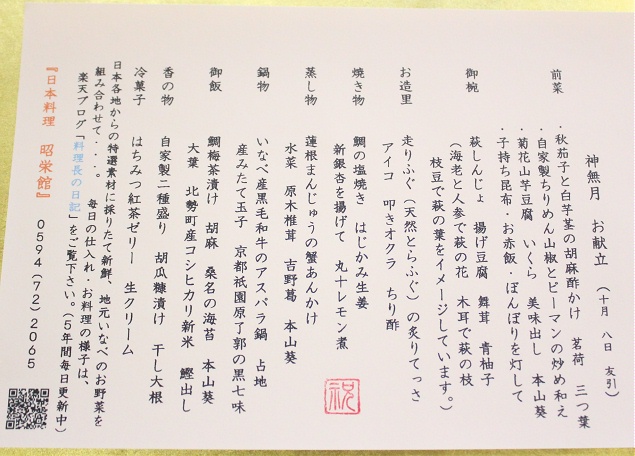 神無月　お献立　（十月　八日　友引）
前菜　秋茄子と白芋茎の胡麻酢かけ　茗荷　三つ葉
・自家製ちりめん山椒とピーマンの炒め和え
・菊花山芋豆腐　いくら　美味出し　本山葵
・子持ち昆布・お赤飯・ぼんぼりを灯して
御椀　萩しんじょ　揚げ豆腐　舞茸　青柚子
（海老と人参で萩の花　木耳で萩の枝
枝豆で萩の葉をイメージしています。）
お造里　走りふぐ（天然とらふぐ）の炙りてっさ
アイコ　叩きオクラ　ちり酢
焼き物　鯛の塩焼き　はじかみ生姜
新銀杏を揚げて　丸十レモン煮
蒸し物　蓮根まんじゅうの蟹あんかけ
水菜　原木椎茸　吉野葛　本山葵
鍋物　いなべ産黒毛和牛のアスパラ鍋　占地
産みたて玉子　京都祇園原了郭の黒七味
御飯　鯛梅茶漬け　胡麻　桑名の海苔　本山葵
大葉　北勢町産コシヒカリ新米　鰹出し
香の物　自家製二種盛り　胡瓜糠漬け　干し大根
冷菓子　はちみつ紅茶ゼリー　生クリーム
日本各地からの特選素材に採りたて新鮮、地元いなべのお野菜を
組み合わせて・・・。　毎日の仕入れ・お料理の様子は、
楽天ブログ「料理長の日記」をご覧下さい。（５年間毎日更新中）
『日本料理　昭栄館』　０５９４（７２）２０６５
祝